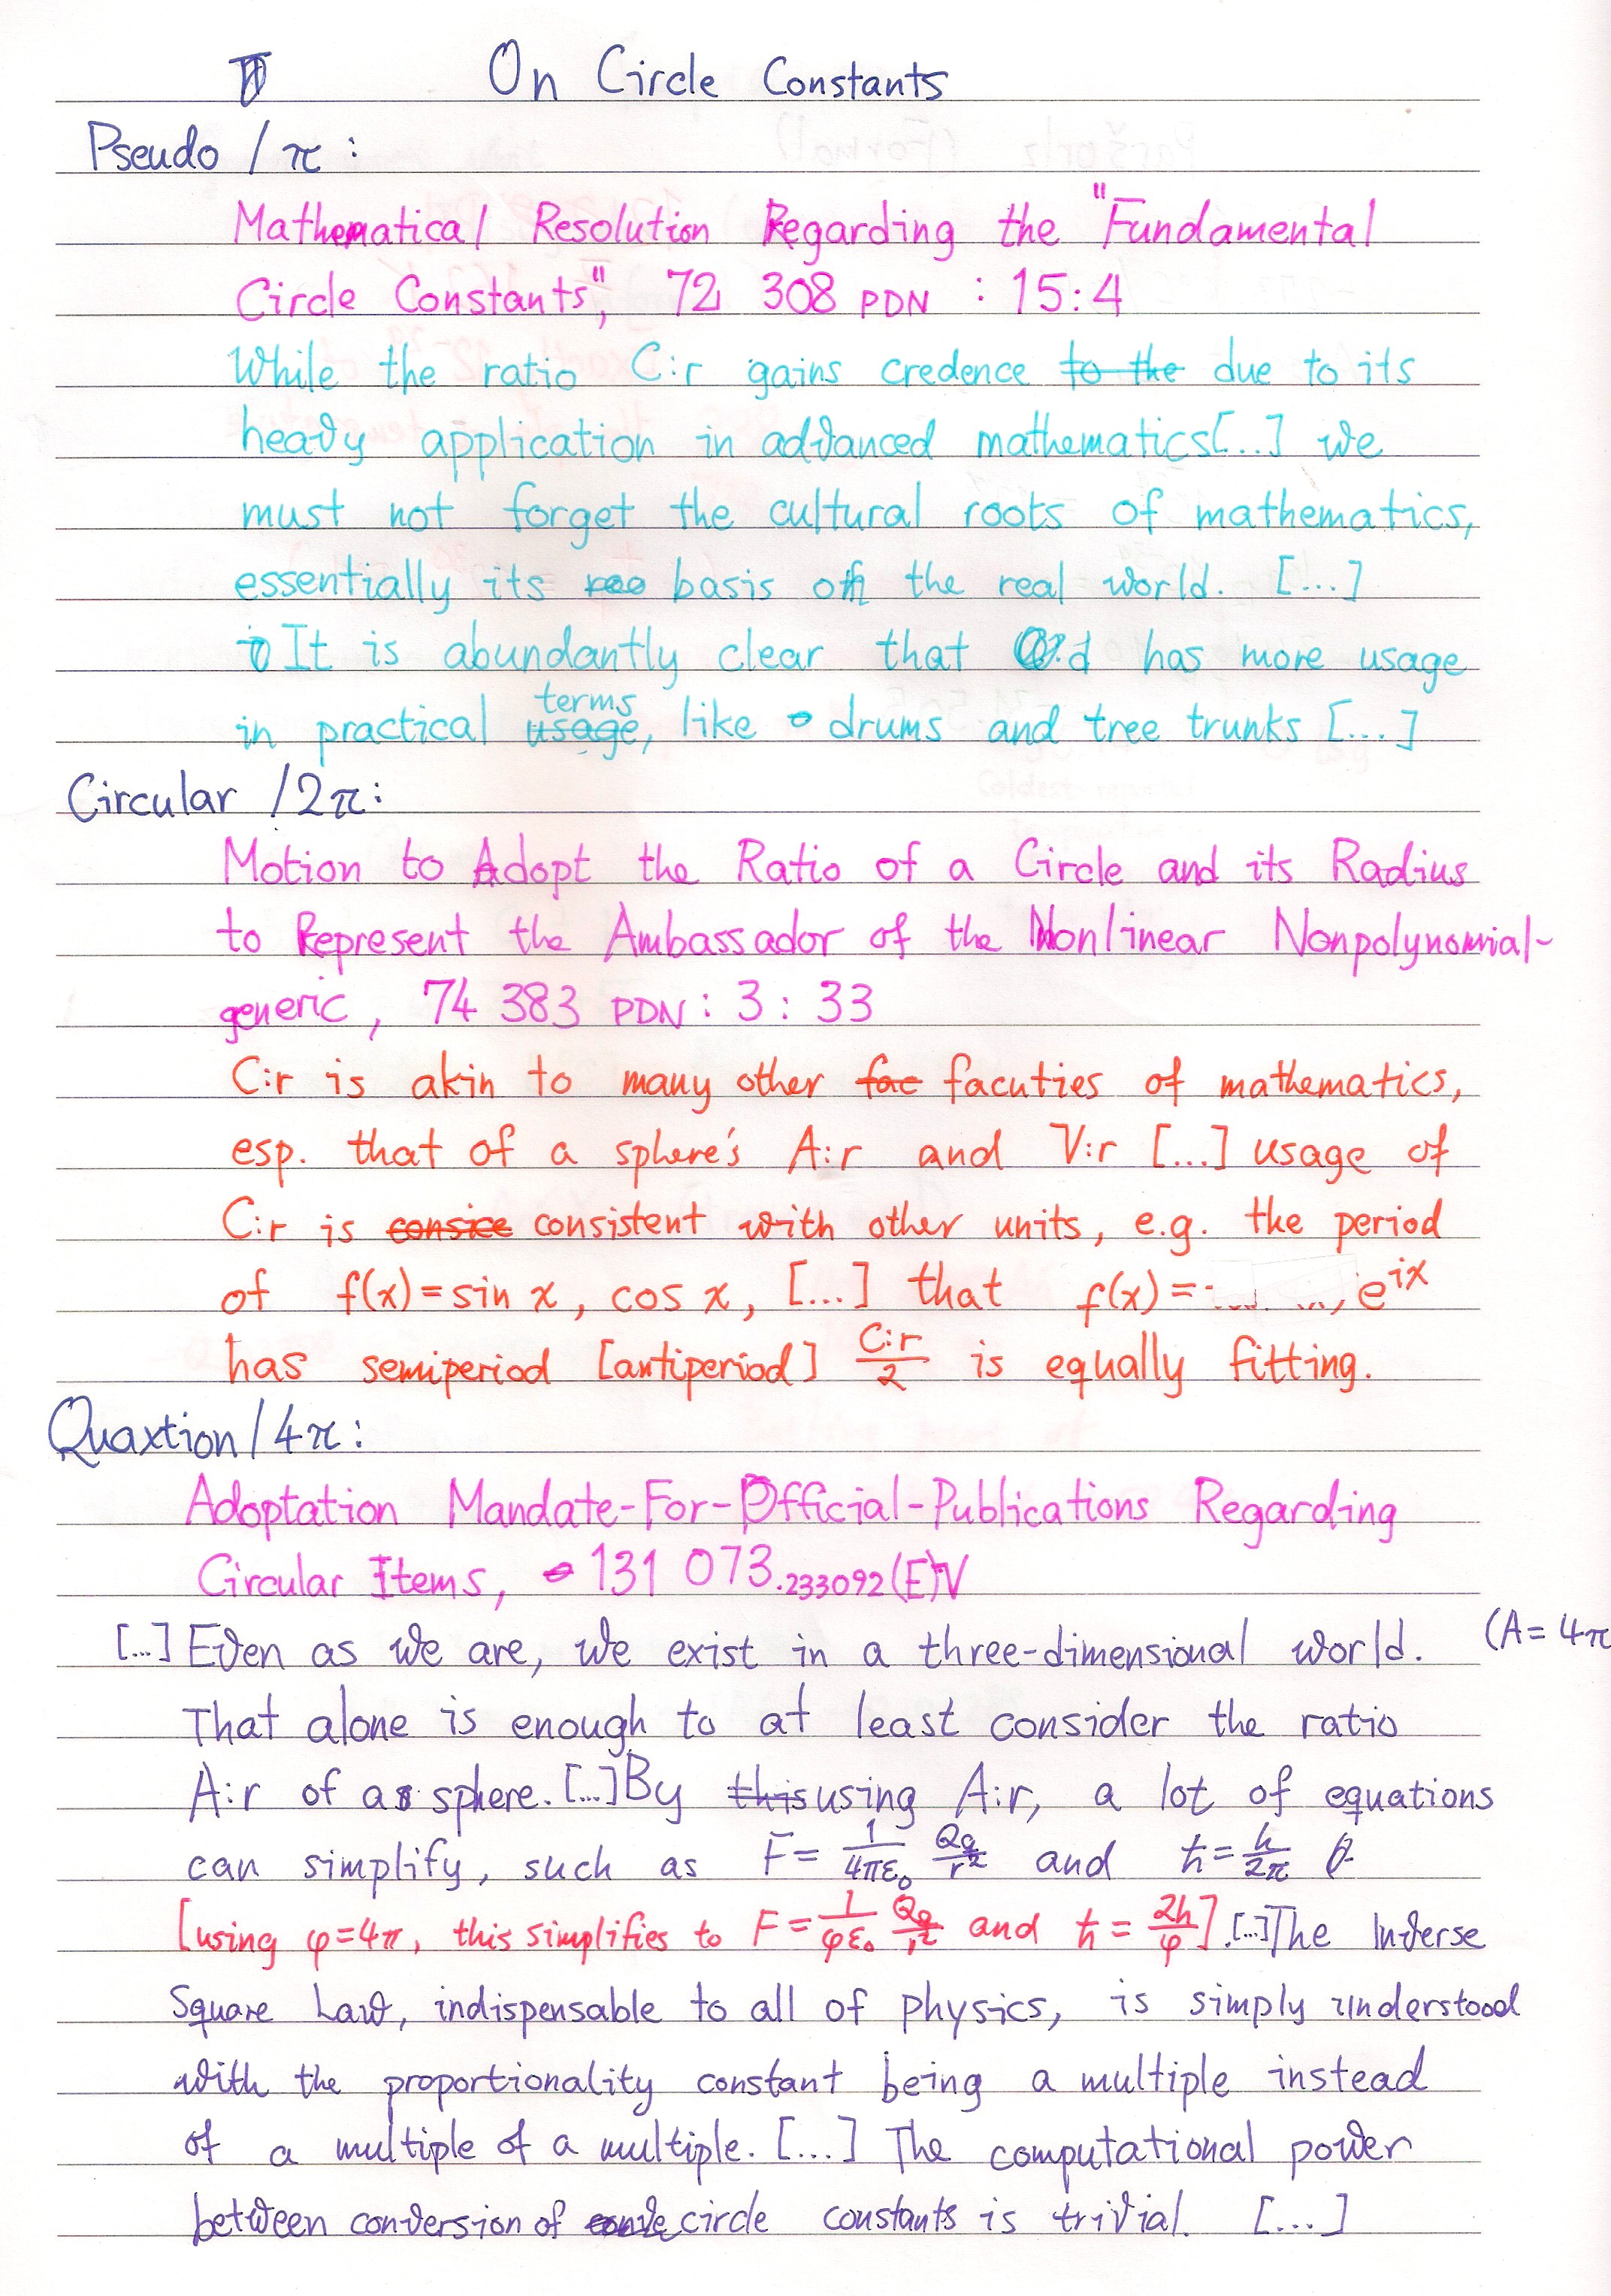 On Circle Constants
Pseudo / π :
Mathematical Resolution Regarding the "Fundamental
Circle Constants", 72 308 PDN : 15:4
While the ratio C:r gains credence to the due to its
heavy application in advanced mathematics[...] we
must not forget the cultural roots of mathematics,
essentially its roo basis on the real world. [...]
It is abundantly clear that C:d has more usage
in practical usage, terms like drums and tree trunks [...]
Circular /2π:
Motion to Adopt the Ratio of a Circle and its Radius
to Represent the Ambassador of the Nonlinear Nonpolynomial-
generic, 74 383 PDN : 3 : 33
C:r is akin to many other fac facuties of mathematics,
esp. that of a sphere's A:r and V:r [...] usage of
C:r is consice consistent with other units, e.g. the period
of f(x)=sin x, cos x, [...] that f(x)= , e^ix
has semiperiod [antiperiod] C:r/2 is equally fitting.
Quaxtion/4π:
Adoptation Mandate-For-Official-Publications Regarding
Circular Items, 131 073.233092(E)V
[...] Even as we are, we exist in a three-dimensional world. (A= 4π
That alone is enough to at least consider the ratio
A:r of a sphere. [...] By this using A:r, a lot of equations
can simplify, such as F= 1/4πε₀ Qq/r² and ħ= h/2π
[using φ=4π, this simplifies to F= 1/φε₀ Qq/r² and ħ= 2h/φ]. [...] The Inverse
Square Law, indispensable to all of physics, is simply understood
with the proportionality constant being a multiple instead
of a multiple of a multiple. [...] The computational power
between conversion of circle constants is trivial. [...]